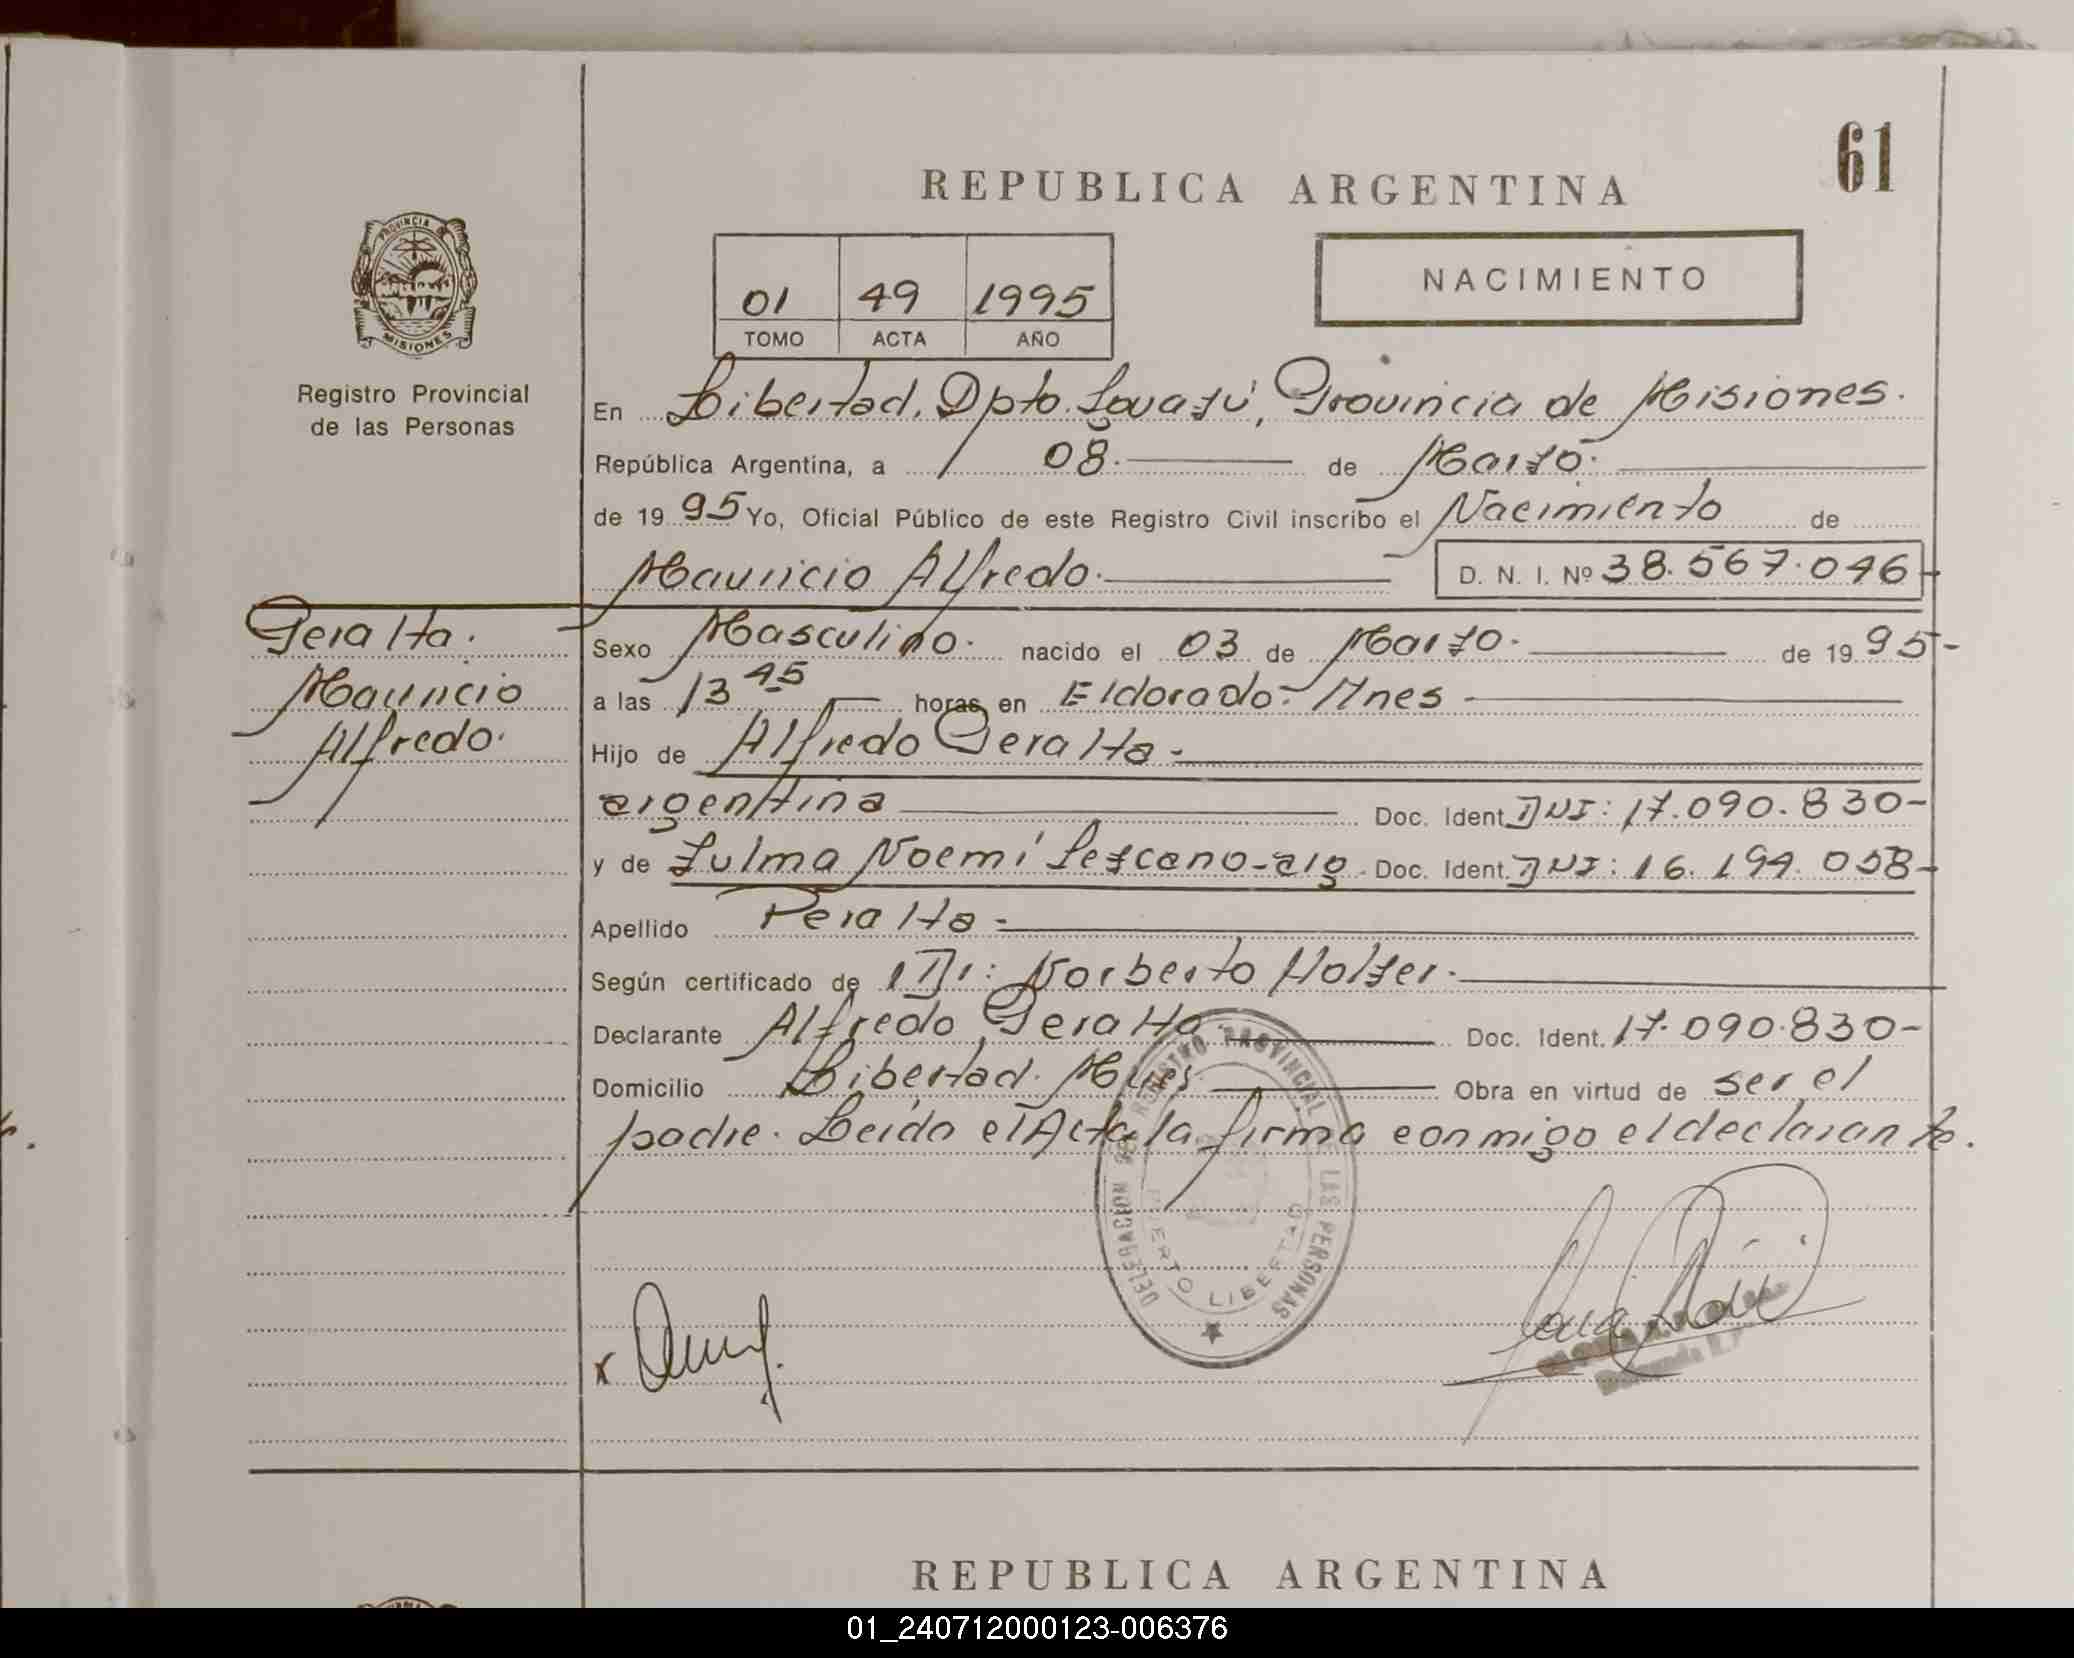 61
REPUBLICA ARGENTINA
PROVINCIA DE
MISIONES
NACIMIENTO
01 49 1995
TOMO ACTA AÑO
Registro Provincial
de las Personas
En Libertad. Dpto. Iguazú, Provincia de Misiones.
República Argentina, a 08.- de Marzo.
de 1995 Yo, Oficial Público de este Registro Civil inscribo el Nacimiento de
Mauricio Alfredo.- D. N. I. Nº 38.567.046
Peralta.
Mauricio
Alfredo.
Sexo Masculino. nacido el 03 de Marzo.- de 1995-
a las 13 45 horas en Eldorado.- Mnes
Hijo de Alfredo Peralta-
argentina Doc. Ident. DNI: 17.090.830-
y de Zulma Noemí Lezcano-arg. Doc. Ident. DNI: 16.194.058-
Apellido Peralta-
Según certificado de Dr: Norberto Holzer.-
Declarante Alfredo Peralta. Doc. Ident. 17.090.830-
Domicilio Libertad. Mnes. Obra en virtud de ser el
padre. Leída el Acta la firma conmigo el declarante.
DELEGACION DE REGISTRO PROVINCIAL DE LAS PERSONAS
PUERTO LIBERTAD
x
REPUBLICA ARGENTINA
01_240712000123-006376